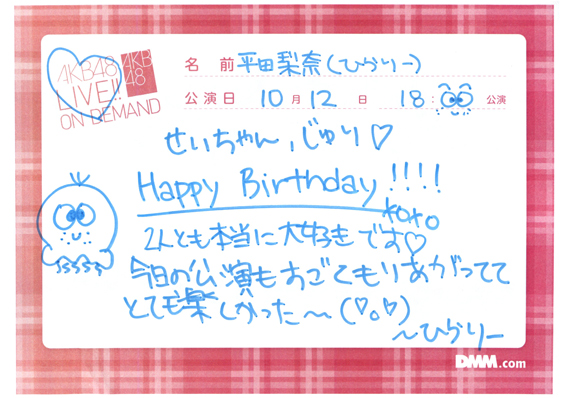 AKB48
LIVE!!
ON DEMAND
AKB
48
名 前 平田梨奈(ひらりー)
公演日 10月12日 18: 公演
せいちゃん、じゅり♡
Happy Birthday!!!!
xoxo
2人とも本当に大好きです♡
今日の公演もすごくもりあがってて
とても楽しかった〜(♡o♡)
〜ひらりー
DMM.com